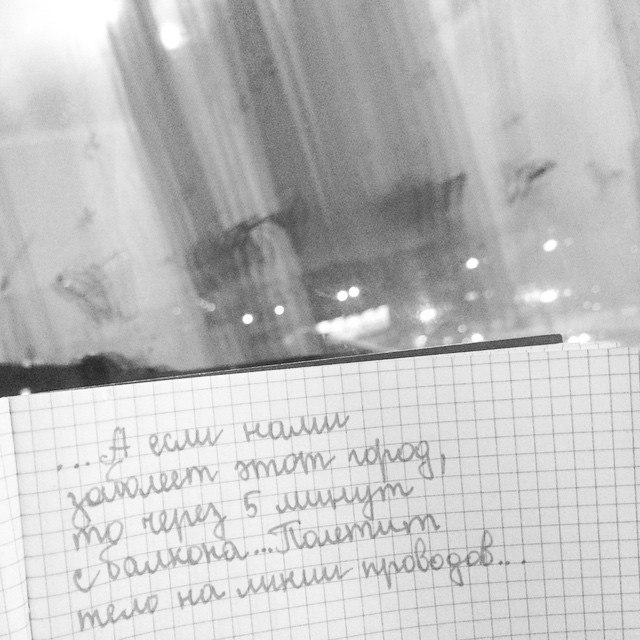 ...А если нами
заболеет этот город,
то через 5 минут
с балкона...Полетит
тело на линии проводов...